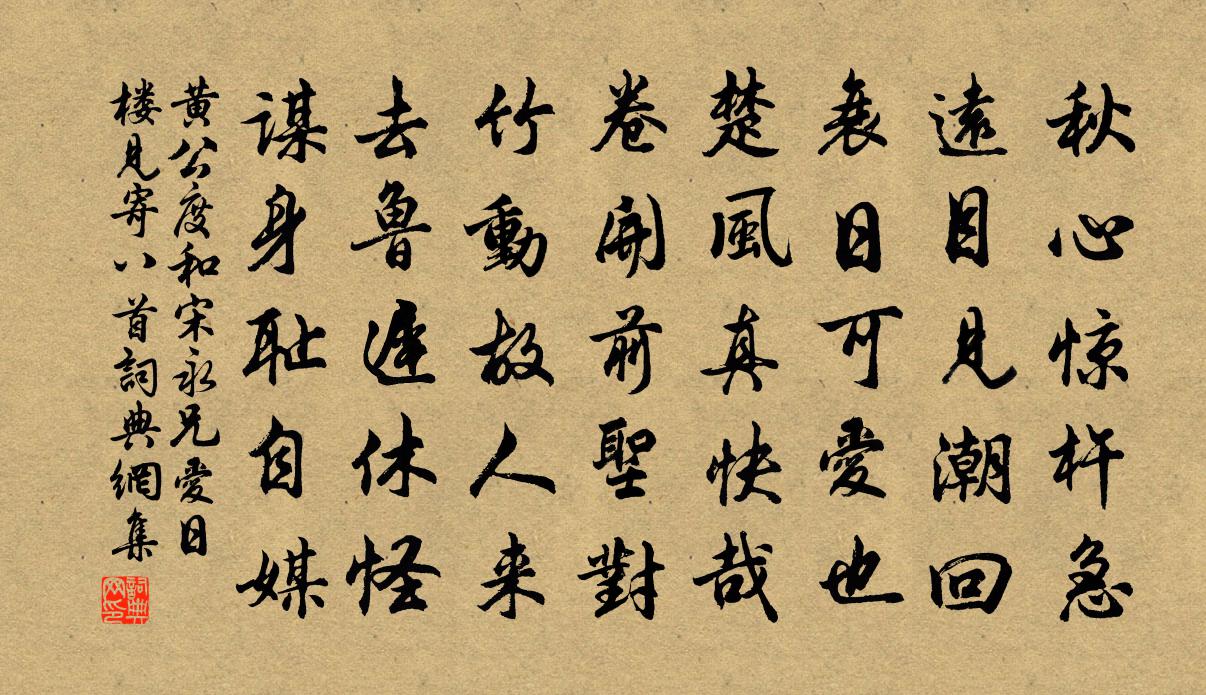 秋心惊杵急
遠目見潮回
衰日可愛也
楚風真快哉
卷開前聖對
竹動故人来
去魯遲休怪
謀身耻自媒
黄公度和宋永兄愛日
楼見寄八首詞典網集
詞典网印